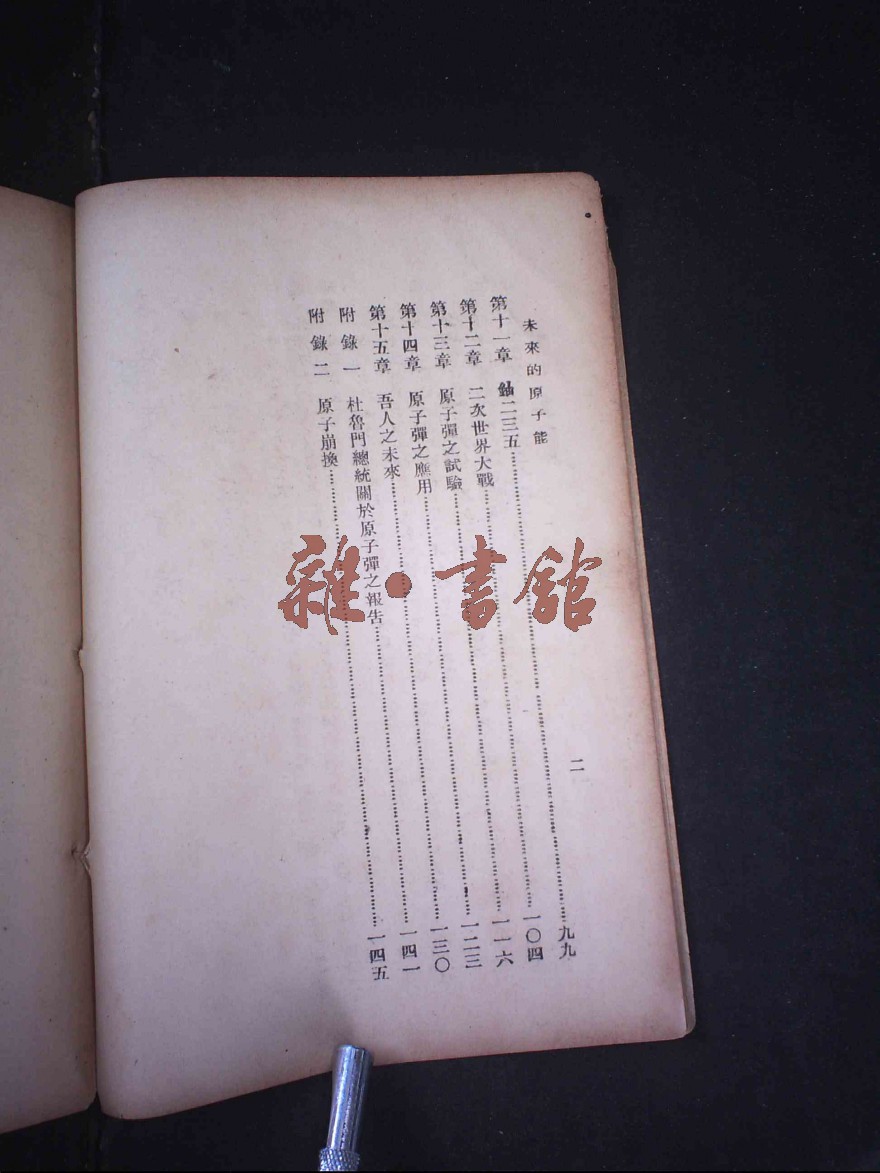 未來的原子能
二
第十一章 鈾二三五……九九
第十二章 二次世界大戰……一〇四
第十三章 原子彈之試驗……一一六
第十四章 原子彈之應用……一二三
第十五章 吾人之未來……一三〇
附錄一 杜魯門總統關於原子彈之報告……一四一
附錄二 原子崩換……一四五
雜·書館